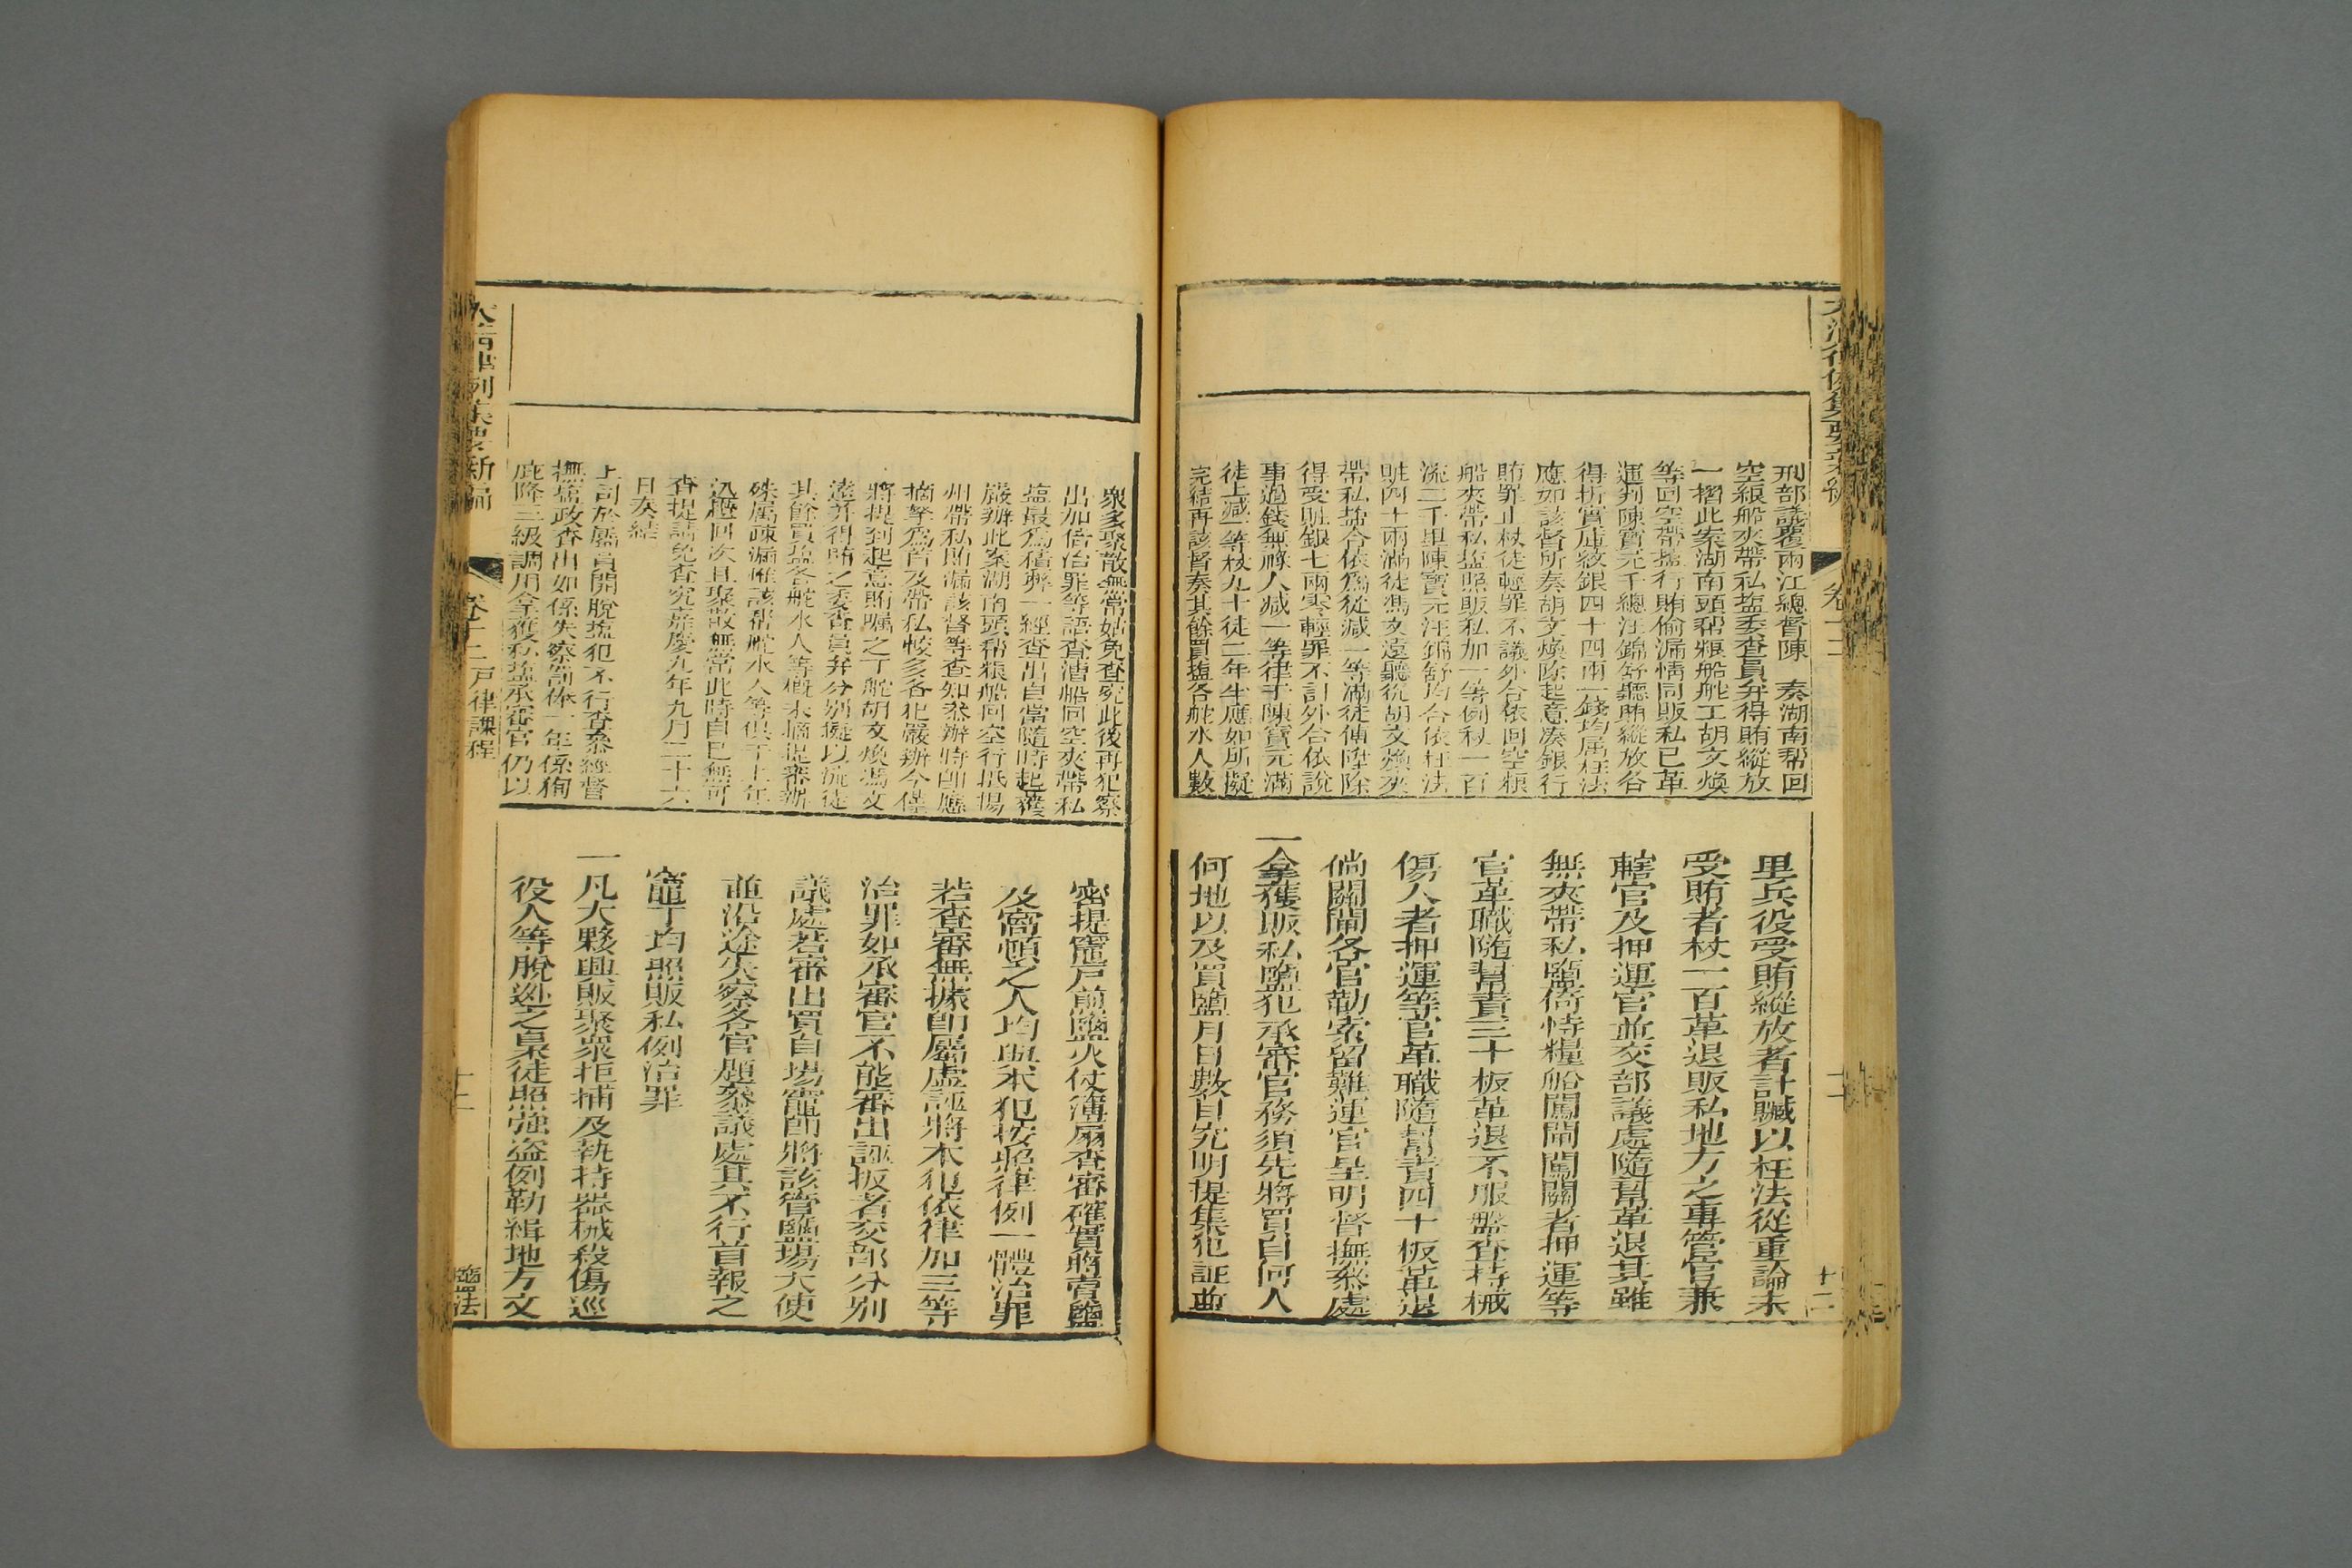 刑部議覆兩江總督陳　奏湖南幇回
空粮船夾帶私塩委查員弁得賄縱放
一摺此案湖南頭幇粮船舵工胡文煥
等回空帶塩行賄偷漏情同販私已革
運判陳寶元千總汪錦舒聽賄縱放各
得折實庫紋銀四十四兩一錢均属枉法
應如該督所奏胡文煥除起意凑銀行
賄罪止杖徒輕罪不議外合依回空粮
船夾帶私塩照販私加一等例杖一百
流二千里陳寶元汪錦舒均合依枉法
賍四十兩滿徒馮文遠聽從胡文煥夾
帶私塩合依為從減一等滿徒傅陞除
得受賍銀七兩零輕罪不計外合依說
事過錢無祿人減一等律于陳寶元滿
徒上減一等杖九十徒二年半應如所擬
完結再該督奏其餘買塩各舵水人數
里兵役受賄縱放者計贓以枉法從重論未
受賄者杖一百革退販私地方之專管官兼
轄官及押運官並交部議處隨幫革退其雖
無夾帶私鹽倚恃糧船闖閘闖關者押運等
官革職隨幫責三十板革退不服盤查持械
傷人者押運等官革職隨幫責四十板革退
倘關閘各官勒索留難運官呈明督撫叅處
一拿獲販私鹽犯承審官務須先將買自何人
何地以及買鹽月日數目究明提集犯証並
衆多聚散無常姑免查究此後再犯察
出加倍治罪等語查漕船回空夾帶私
塩最為積弊一經查出自當隨時起獲
嚴辦此案湖南頭幇粮船回空行抵揚
州帶私賄漏該督等查知叅辦時卽應
摘拏為首及帶私較多各犯嚴辦今僅
將提到起意賄囑之丁舵胡文煥馮文
遠并得賄之委查員弁分别擬以流徒
其餘買塩各舵水人等概未摘提案辦
殊属疎漏惟該幇舵水人等俱于上年
廹趱回次且聚散無常此時自已無可
查提請免查究嘉慶九年九月二十六
日奏結
上司於屬員開脫塩犯不行查叅經督
撫塩政查出如係失察罰俸一年係徇
庇降三級調用拿獲私塩承審官仍以
密提竈戶煎鹽火仗簿扇查審確實將賣鹽
及窩頓之人均與本犯按照律例一體治罪
若查審無據卽屬虛誣將本犯依律加三等
治罪如承審官不能審出誣扳者交部分別
議處若審出買自場竈卽將該管鹽場大使
並沿途失察各官題叅議處其不行首報之
竈丁均照販私例治罪
一凡大夥興販聚衆拒捕及執持器械殺傷巡
役人等脫逃之梟徒照強盜例勒緝地方文
大清律例集要新編
卷十二戶律課程
十二
鹽法